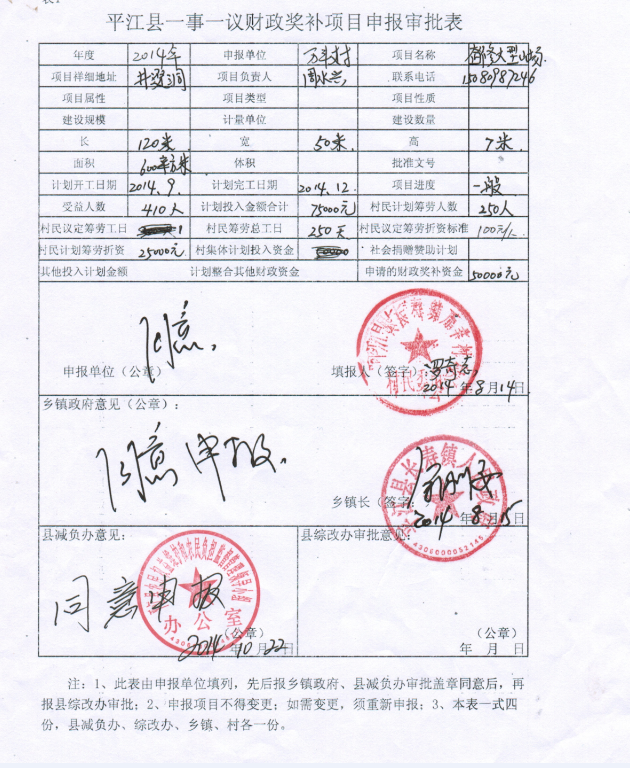 平江县一事一议财政奖补项目申报审批表
年度 2014年 申报单位 项目名称
项目详细地址 项目负责人 联系电话 15080987246
项目属性 项目类型 项目性质
建设规模 计量单位 建设数量
长 120米 宽 50米 高 7米
面积 600平方米 体积 批准文号
计划开工日期 2014.9. 计划完工日期 2014.12. 项目进度 一般
受益人数 410人 计划投入金额合计 75000元 村民计划筹劳人数 250人
村民议定筹劳工日 村民筹劳总工日 250天 村民议定筹劳折资标准 100元/人
村民计划筹劳折资 25000元 村集体计划投入资金 社会捐赠赞助计划
其他投入计划金额 计划整合其他财政资金 申请的财政奖补资金 50000元
同意.
申报单位（公章） 填报人（签字）:
2014年8月14日
乡镇政府意见（公章）:
同意申报.
平江县长寿镇人民政府
乡镇长（签字:
2014年8月15
4306000052145
县减负办意见: 县综改办审批意见:
同意申报
办公室
（公章） （公章）
2014年10月22 年 月 日
注：1、此表由申报单位填列，先后报乡镇政府、县减负办审批盖章同意后，再
报县综改办审批；2、申报项目不得变更；如需变更，须重新申报；3、本表一式四
份，县减负办、综改办、乡镇、村各一份。